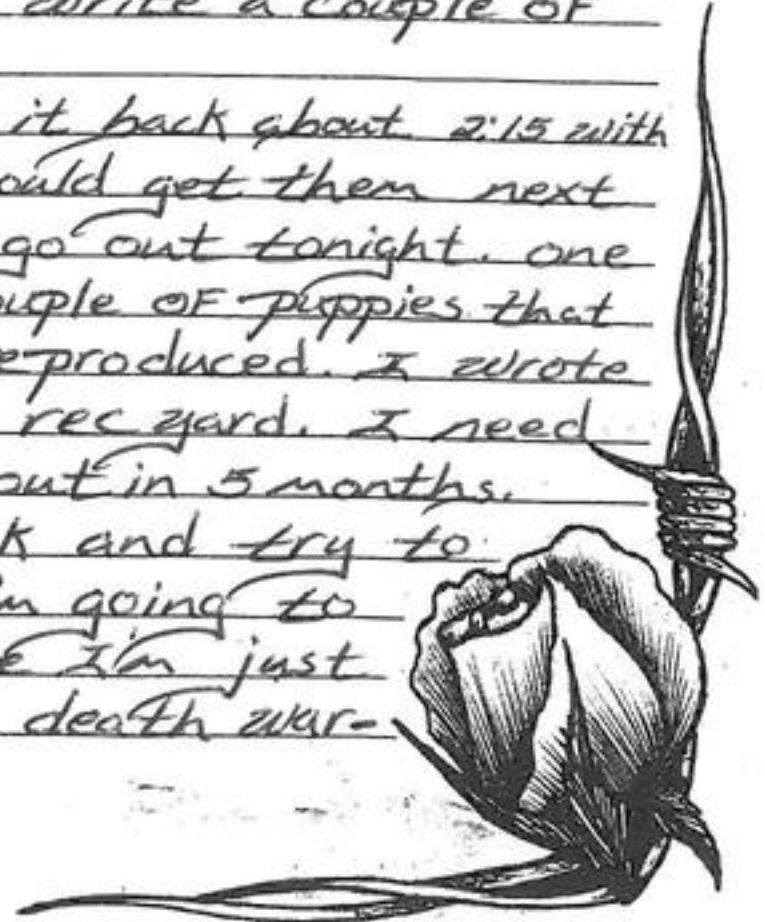 write a couple of
it back about 2:15 with
ould get them next
go out tonight. one
ouple of puppies that
eproduced. I wrote
rec yard. I need
out in 5 months.
k and try to
m going to
e I'm just
death war-